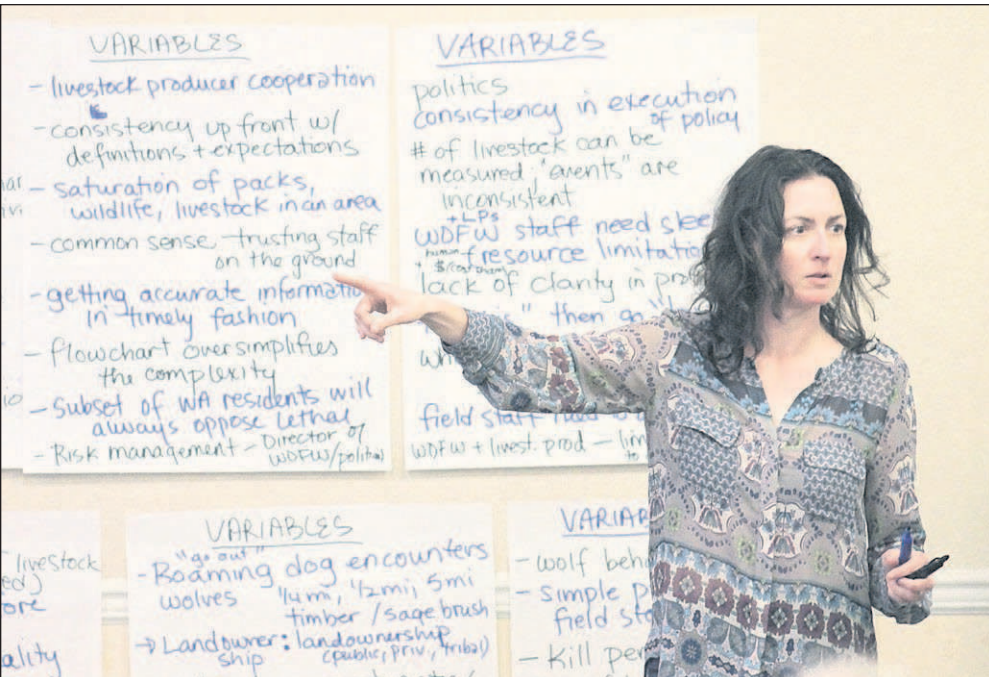 VARIABLES
- livestock producer cooperation
- consistency up front w/
definitions + expectations
- saturation of packs,
wildlife, livestock in an area
- common sense - trusting staff
on the ground
- getting accurate informatio
in timely fashion
- flowchart oversimplifies
the complexity
- Subset of WA residents will
always oppose lethal
- Risk management - Director of
WDFW/political
VARIABLES
politics
consistency in execution
of policy
# of livestock can be
measured; "events" are
inconsistent
+ LPs
WDFW staff need slee
human
resource limitatio
lack of clarity in pro
" then go "
wh
field staff
WDFW + livest. prod - lim
to
livestock
ed)
ore
ality
VARIABLES
"go out"
- Roaming dog encounters
wolves 1/4 mi, 1/2 mi, 5 mi
timber / sage brush
→ Landowner: landownership
ship (public, priv., tribal)
VARIAB
- wolf beh
- simple p
field sta
- Kill per